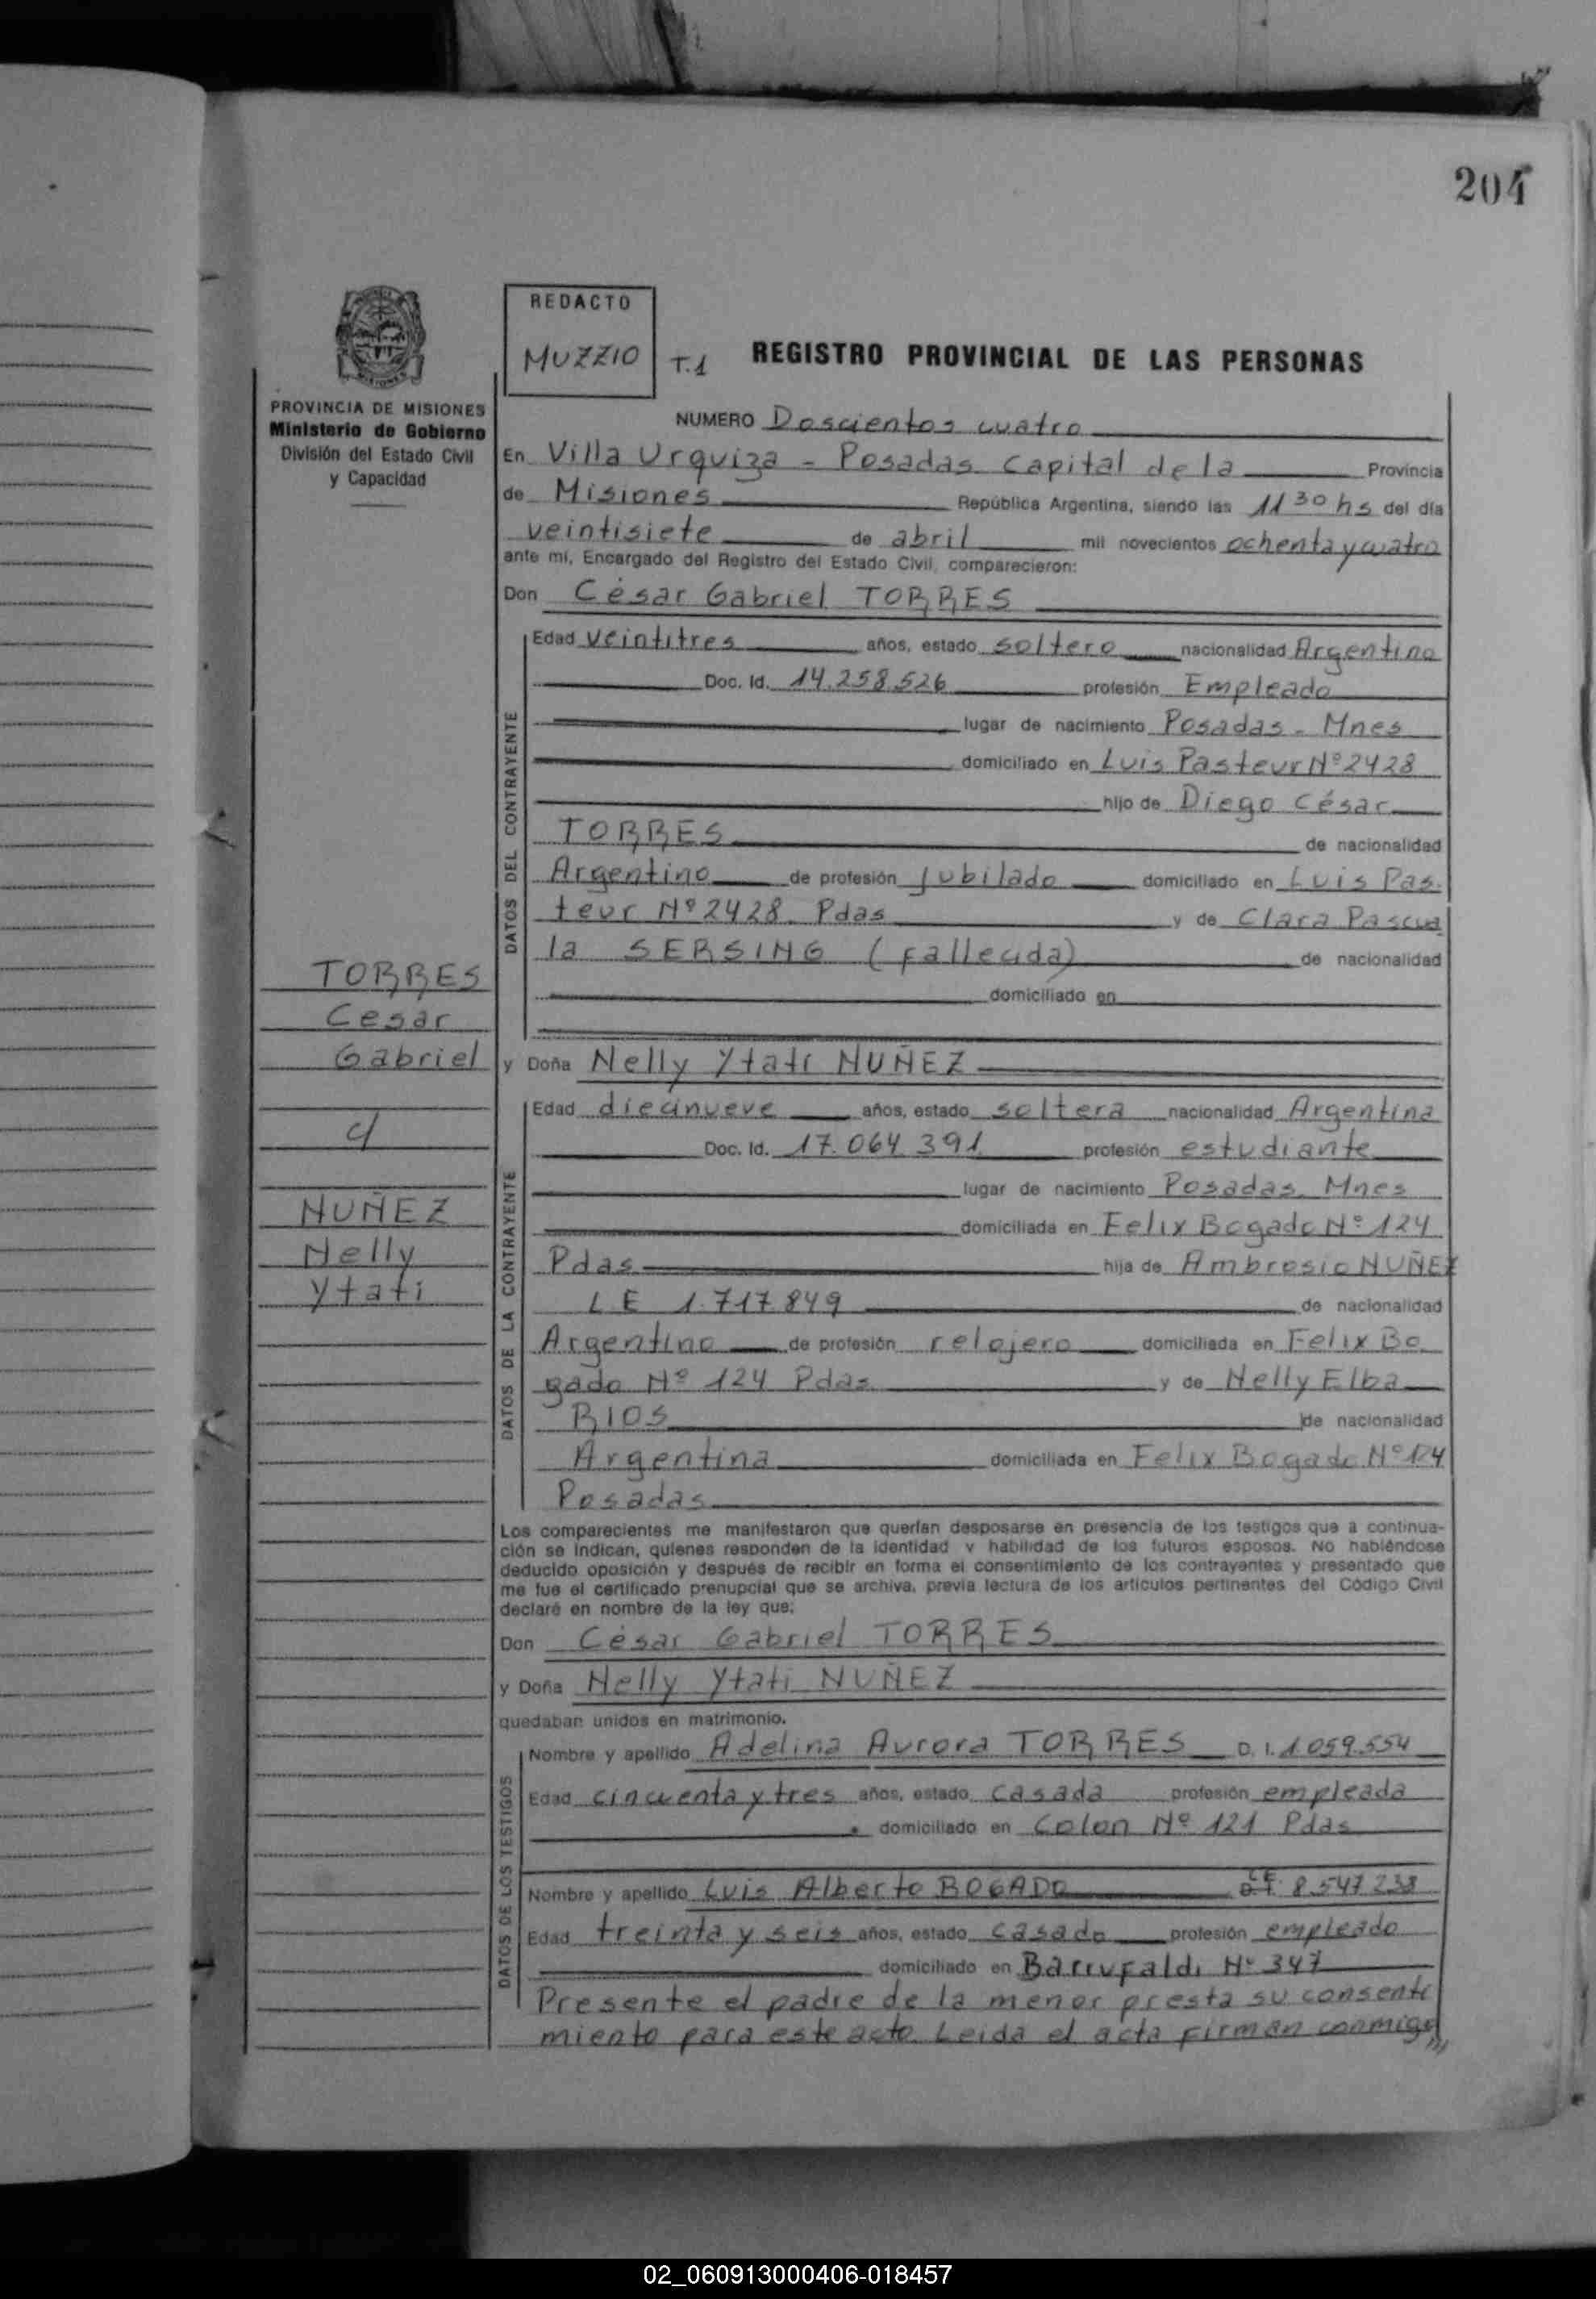 204
REDACTO
MUZZIO
T.1 REGISTRO PROVINCIAL DE LAS PERSONAS
PROVINCIA DE MISIONES
Ministerio de Gobierno
División del Estado Civil
y Capacidad
NUMERO Doscientos cuatro
En Villa Urquiza - Posadas Capital de la Provincia
de Misiones República Argentina, siendo las 11 30 hs del día
veintisiete de abril mil novecientos ochenta y cuatro
ante mí, Encargado del Registro del Estado Civil, comparecieron:
Don César Gabriel TORRES
DATOS DEL CONTRAYENTE
Edad veintitres años, estado soltero nacionalidad Argentino
Doc. Id. 14.258.526 profesión Empleado
lugar de nacimiento Posadas - Mnes
domiciliado en Luis Pasteur Nº 2428
hijo de Diego César
TORRES de nacionalidad
Argentino de profesión Jubilado domiciliado en Luis Pas.
teur Nº 2428 Pdas y de Clara Pascua
la SERSING (fallecida) de nacionalidad
domiciliado en
TORRES
Cesar
Gabriel
c/
NUÑEZ
Nelly
Ytati
y Doña Nelly Ytatí NUÑEZ
DATOS DE LA CONTRAYENTE
Edad diecinueve años, estado soltera nacionalidad Argentina
Doc. Id. 17.064.391 profesión estudiante
lugar de nacimiento Posadas Mnes
domiciliada en Felix Bogado Nº 124
Pdas hija de Ambrosio NUÑEZ
LE 1.717.849 de nacionalidad
Argentino de profesión relojero domiciliada en Felix Bo
gado Nº 124 Pdas y de Nelly Elba
RIOS de nacionalidad
Argentina domiciliada en Felix Bogado Nº 124
Posadas
Los comparecientes me manifestaron que querían desposarse en presencia de los testigos que a continua-
ción se indican, quienes responden de la identidad y habilidad de los futuros esposos. No habiéndose
deducido oposición y después de recibir en forma el consentimiento de los contrayentes y presentado que
me fue el certificado prenupcial que se archiva, previa lectura de los artículos pertinentes del Código Civil
declaré en nombre de la ley que:
Don César Gabriel TORRES
y Doña Nelly Ytatí NUÑEZ
quedaban unidos en matrimonio.
DATOS DE LOS TESTIGOS
Nombre y apellido Adelina Aurora TORRES D. I. 1.059.554
Edad cincuenta y tres años, estado casada profesión empleada
domiciliado en Colon Nº 121 Pdas
Nombre y apellido Luis Alberto BOGADO LE 8.547.238
Edad treinta y seis años, estado casado profesión empleado
domiciliado en Barrufaldi Nº 347
Presente el padre de la menor presta su consenti
miento para este acto. Leida el acta firman conmigo,,,
02_060913000406-018457